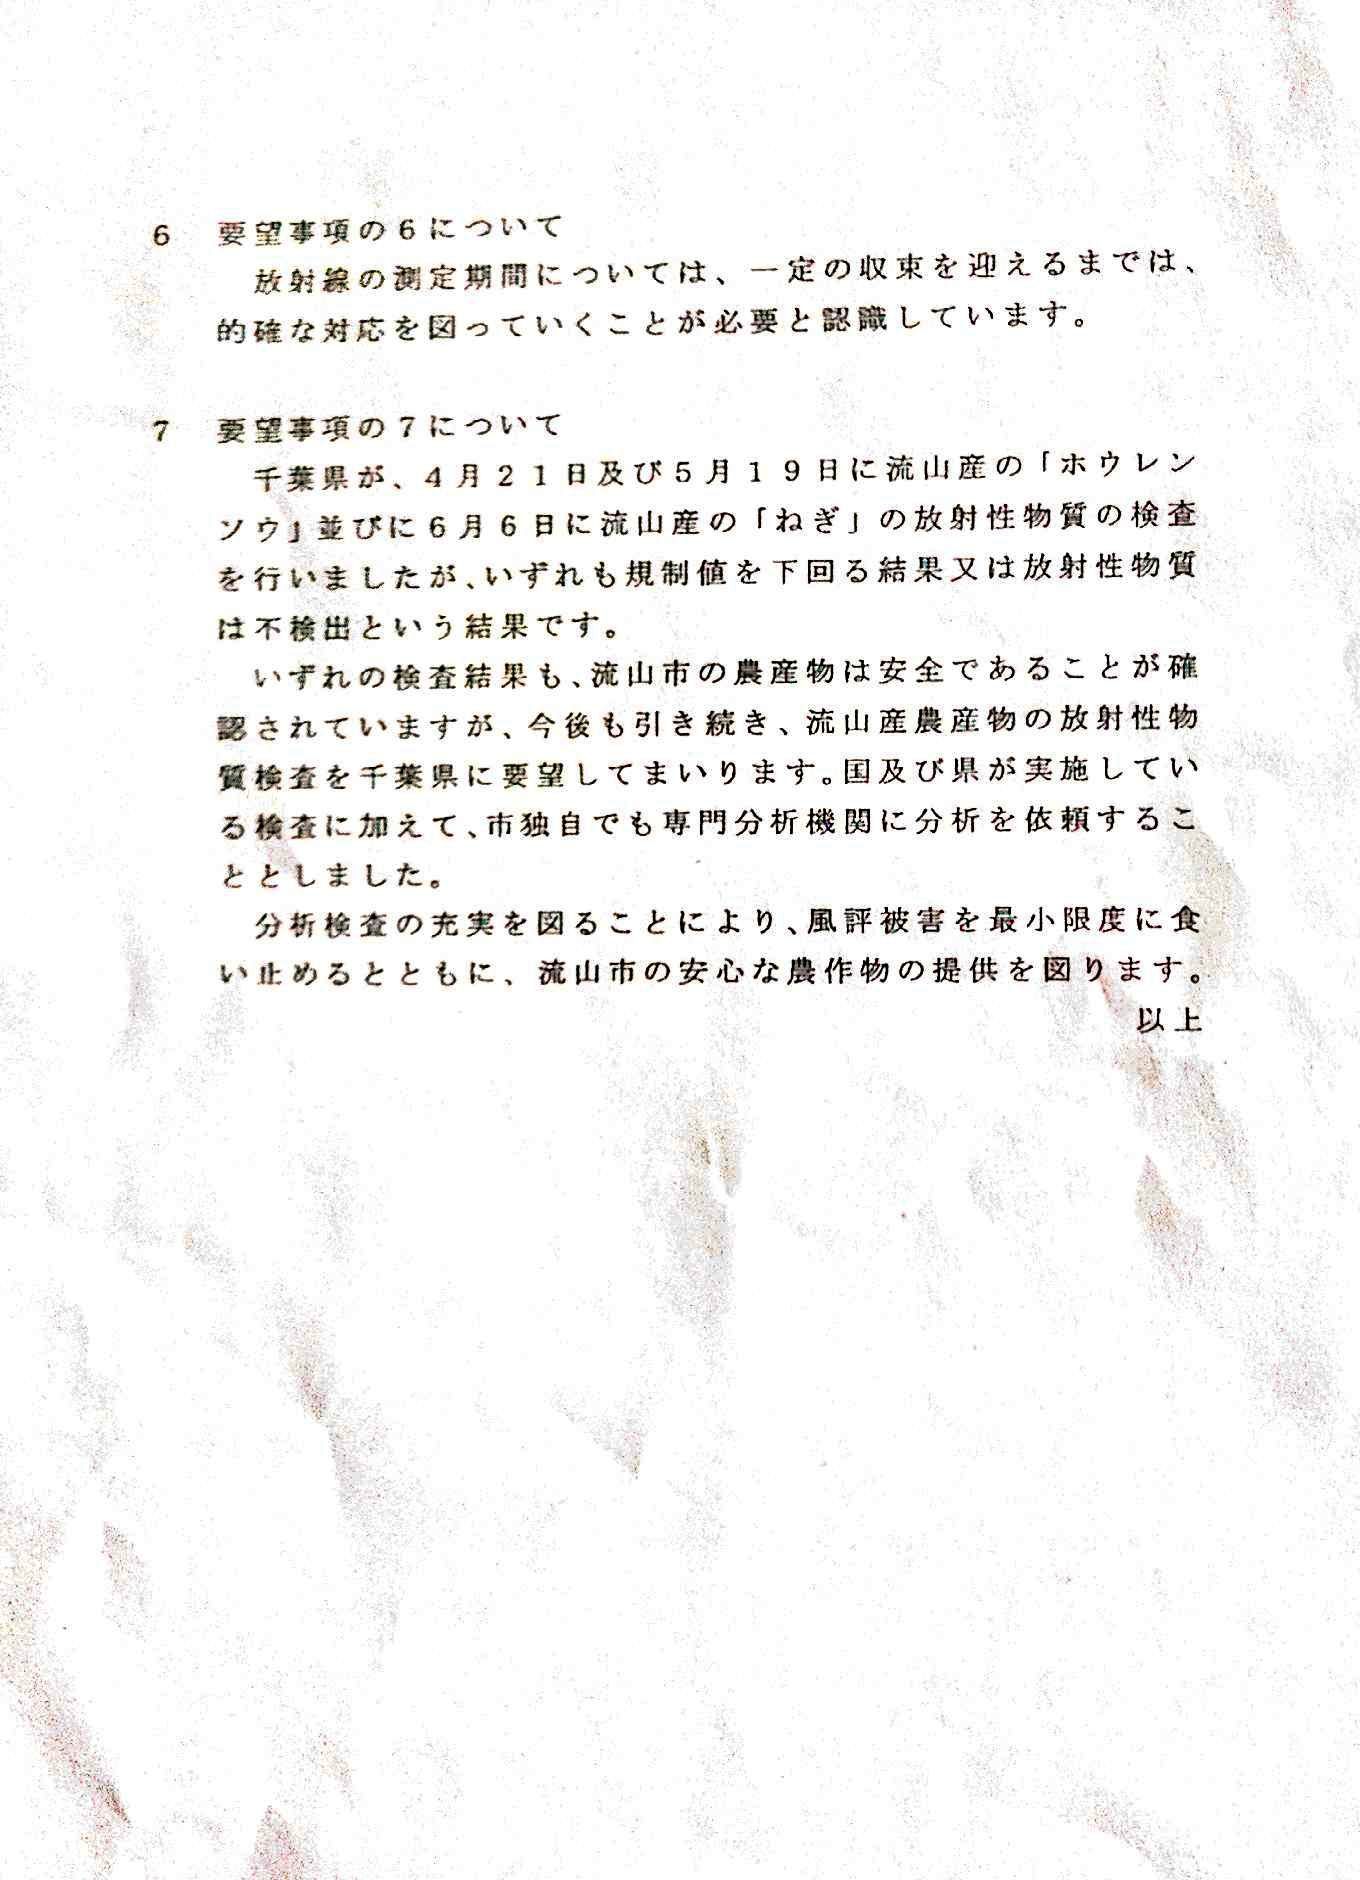 6　要望事項の6について
放射線の測定期間については、一定の収束を迎えるまでは、
的確な対応を図っていくことが必要と認識しています。
7　要望事項の7について
千葉県が、4月21日及び5月19日に流山産の「ホウレン
ソウ」並びに6月6日に流山産の「ねぎ」の放射性物質の検査
を行いましたが、いずれも規制値を下回る結果又は放射性物質
は不検出という結果です。
いずれの検査結果も、流山市の農産物は安全であることが確
認されていますが、今後も引き続き、流山産農産物の放射性物
質検査を千葉県に要望してまいります。国及び県が実施してい
る検査に加えて、市独自でも専門分析機関に分析を依頼するこ
ととしました。
分析検査の充実を図ることにより、風評被害を最小限度に食
い止めるとともに、流山市の安心な農作物の提供を図ります。
以上